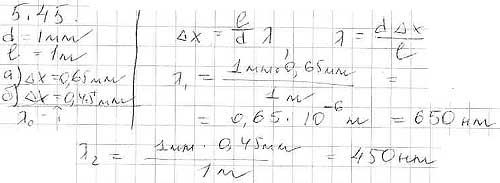 5.45.
d = 1мм
l = 1м
а) Δx = 0,65мм
б) Δx = 0,45мм
λ₀ - ?
Δx = l/d λ, λ = dΔx/l
λ₁ = 1мм · 0,65мм / 1м =
= 0,65 · 10⁻⁶ м = 650 нм
λ₂ = 1мм · 0,45мм / 1м = 450нм